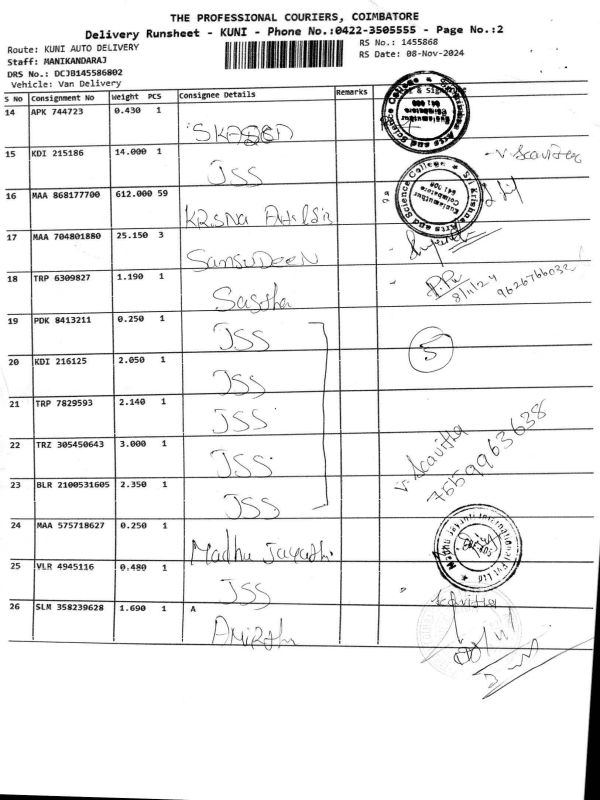 THE PROFESSIONAL COURIERS, COIMBATORE
Delivery Runsheet - KUNI - Phone No.:0422-3505555 - Page No.:2
Route: KUNI AUTO DELIVERY
RS No.: 1455868
Staff: MANIKANDARAJ
RS Date: 08-Nov-2024
DRS No.: DCJB145586802
Vehicle: Van Delivery
S No Consignment No Weight PCS Consignee Details Remarks
14 APK 744723 0.430 1
15 KDI 215186 14.000 1 JSS
16 MAA 868177700 612.000 59 KRISNA
17 MAA 704801880 25.150 3 SamsuDeeN
18 TRP 6309827 1.190 1 Sastha
8/11/24 9626766032
19 PDK 8413211 0.250 1 JSS
5
20 KDI 216125 2.050 1 JSS
21 TRP 7829593 2.140 1 JSS
22 TRZ 305450643 3.000 1 JSS
7559963638
23 BLR 2100531605 2.350 1 JSS
24 MAA 575718627 0.250 1 Madhu Jayanthi
Madhu Jayanti International Pvt Ltd
25 VLR 4945116 0.480 1 JSS
26 SLM 358239628 1.690 1 A
Sri Krishna Arts and Science College
Kuniamuthur
Coimbatore
641 008